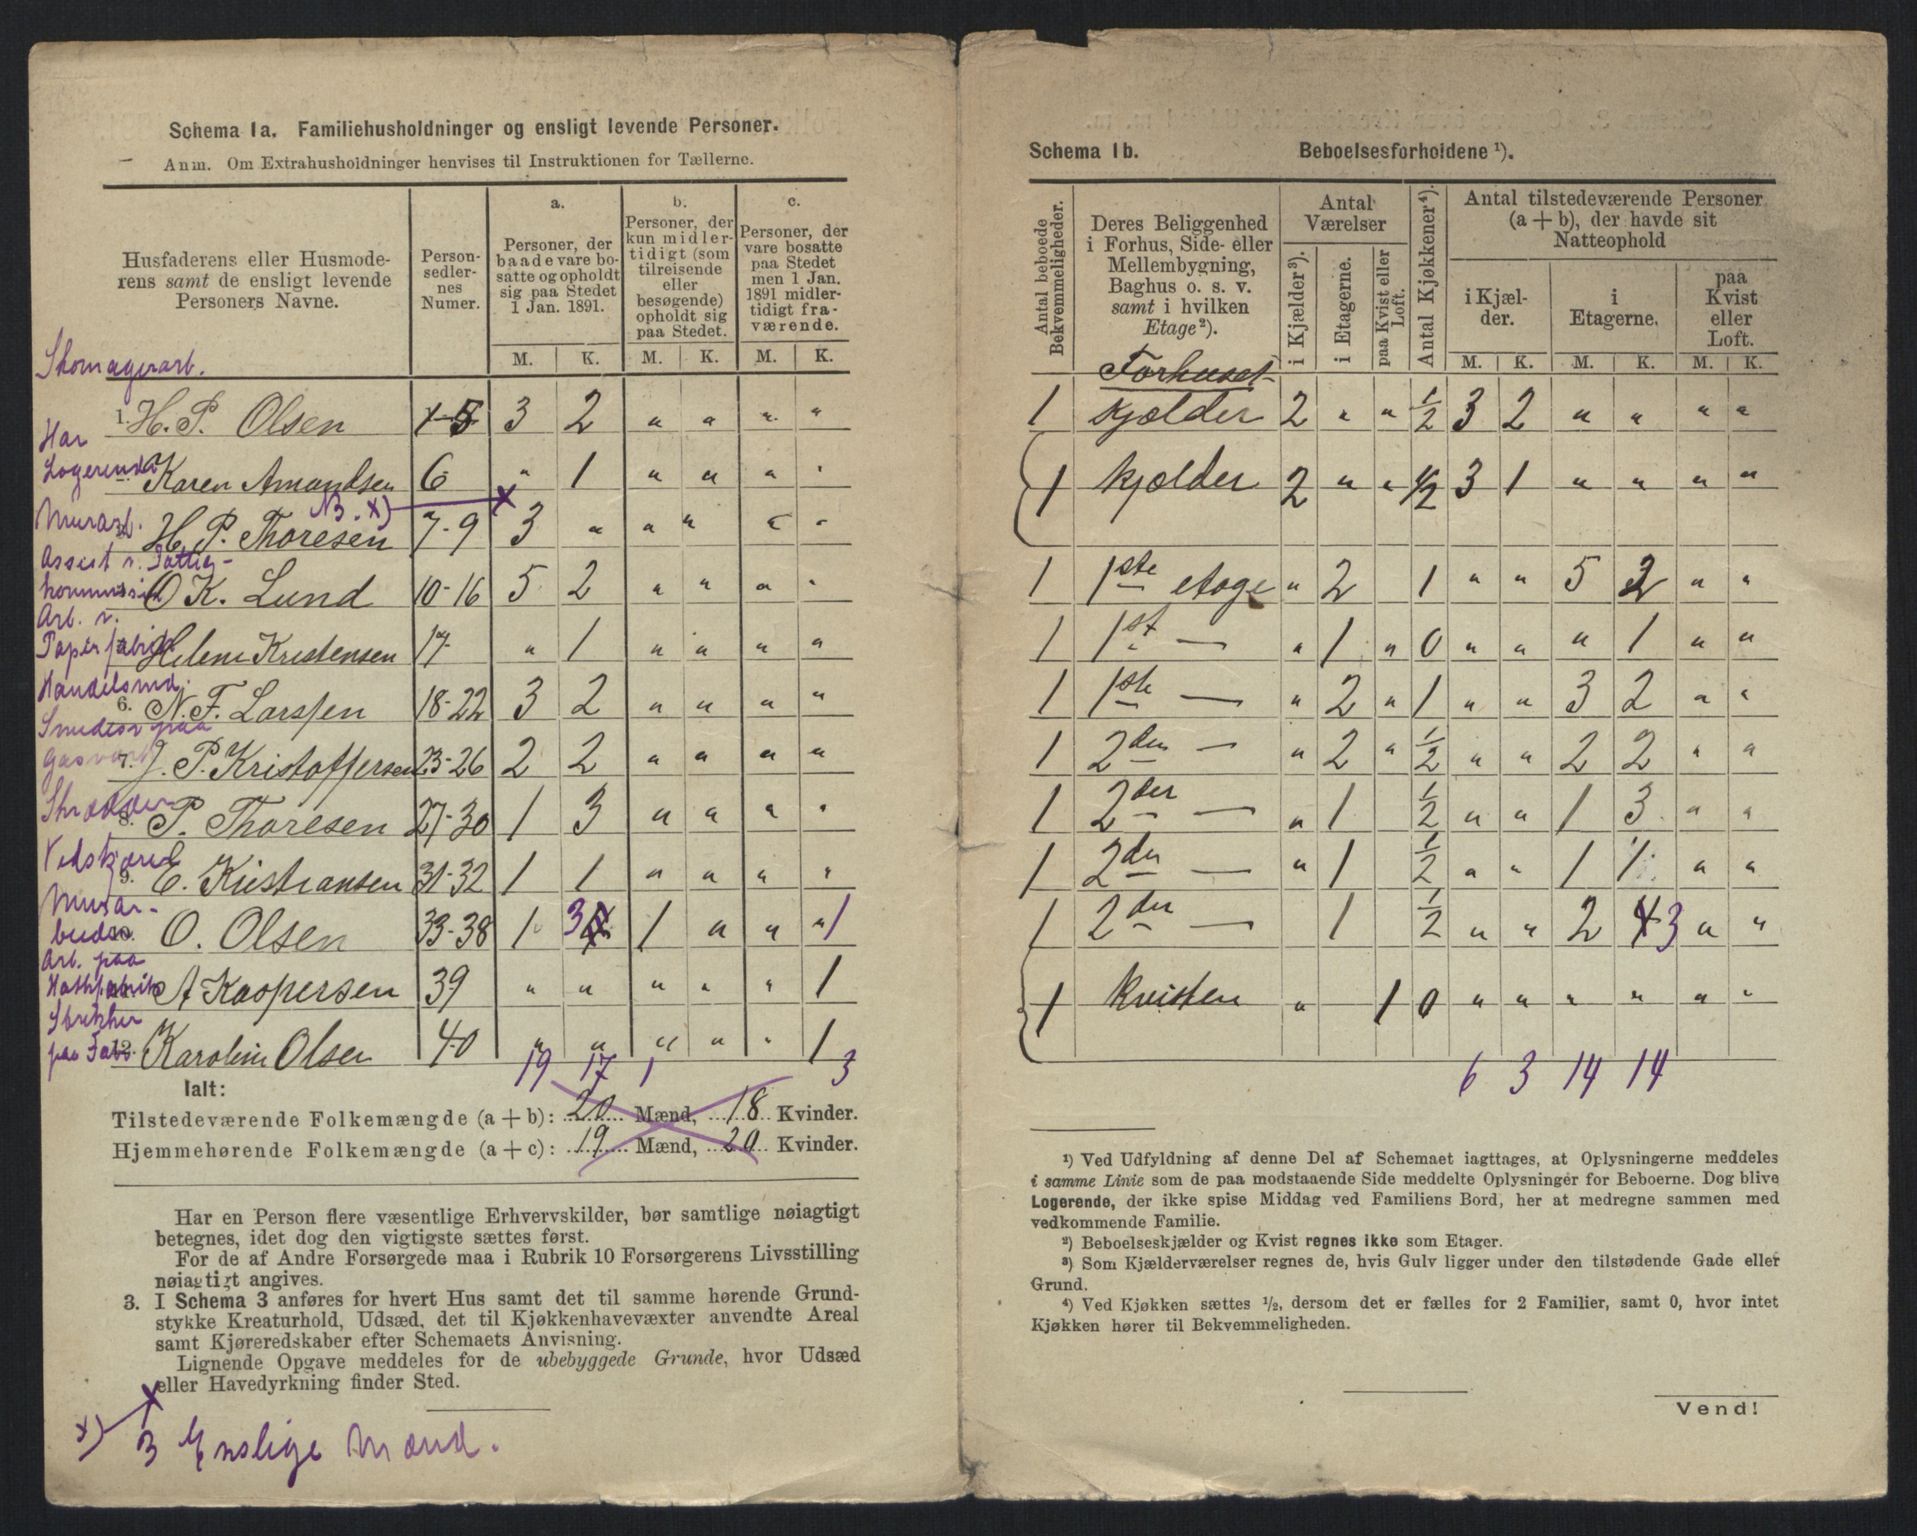 Schema 1a. Familiehusholdninger og ensligt levende Personer.
Anm. Om Extrahusholdninger henvises til Instruktionen for Tællerne.
Husfaderens eller Husmoderens samt de ensligt levende Personers Navne.
Personsedlernes Numer.
a. Personer, der baade vare bosatte og opholdt sig paa Stedet 1 Jan. 1891.
b. Personer, der kun midlertidigt (som tilreisende eller besøgende) opholdt sig paa Stedet.
c. Personer, der vare bosatte paa Stedet men 1 Jan. 1891 midlertidigt fraværende.
M. K. M. K. M. K.
Skomagerarb.
1. H. P. Olsen 1-5 3 2 " " " "
Har Logerende
Karen Amundsen 6 " 1 " " " "
N3. x)
Murarb.
H. P. Thoresen 7-9 3 " " " " "
Assist v. Fattigkommission
O K. Lund 10-16 5 2 " " " "
Arb. v. Papirfabrik
Helene Kristensen 17 " 1 " " " "
Handelsmd.
6. N. F. Larssen 18-22 3 2 " " " "
Smedesv paa Gasværk
7. J. P. Kristoffersen 23-26 2 2 " " " "
Skrædder
8. P. Thoresen 27-30 1 3 " " " "
Vedskjærer
9. E. Kristiansen 31-32 1 1 " " " "
Murar-
10. O. Olsen 33-38 1 3 1 " " " 1
Arb. paa
A Kaspersen 39 " " " " " 1
12. Karoline Olsen 40 " " " " " 1
19 17 1 3
Ialt:
Tilstedeværende Folkemængde (a + b): 20 Mænd, 18 Kvinder.
Hjemmehørende Folkemængde (a + c): 19 Mænd, 20 Kvinder.
Har en Person flere væsentlige Erhvervskilder, bør samtlige nøiagtigt
betegnes, idet dog den vigtigste sættes først.
For de af Andre Forsørgede maa i Rubrik 10 Forsørgerens Livsstilling
nøiagtigt angives.
3. I Schema 3 anføres for hvert Hus samt det til samme hørende Grund-
stykke Kreaturhold, Udsæd, det til Kjøkkenhavevæxter anvendte Areal
samt Kjøreredskaber efter Schemaets Anvisning.
Lignende Opgave meddeles for de ubebyggede Grunde, hvor Udsæd
eller Havedyrkning finder Sted.
x) 3 Enslige Mænd.
Schema 1b. Beboelsesforholdene ¹).
Antal beboede Bekvemmeligheder.
Deres Beliggenhed i Forhus, Side- eller Mellembygning, Baghus o. s. v. samt i hvilken Etage²).
Antal Værelser
i Kjælder³). i Etagerne. paa Kvist eller Loft.
Antal Kjøkkener⁴).
Antal tilstedeværende Personer (a + b), der havde sit Natteophold
i Kjælder. i Etagerne. paa Kvist eller Loft.
M. K. M. K. M. K.
Forhuset
1 Kjælder 2 " " 1/2 3 2 " " " "
1 Kjælder 2 " " 1/2 3 1 " " " "
1 1ste etage " 2 1 " " 5 2 " "
1 1st — " 1 " 0 " " " 1 " "
1 1ste — " 2 " 1 " " 3 2 " "
1 2den — " 2 " 1/2 " " 2 2 " "
1 2den — " 1 1/2 " " 1 3 " "
1 2den — " 1 1/2 " " 1 1 " "
1 2den — 1 1/2 " " 2 4 3 " "
1 Kvisten " 1 0 " " " " " "
6 3 14 14
¹) Ved Udfyldning af denne Del af Schemaet iagttages, at Oplysningerne meddeles
i samme Linie som de paa modstaaende Side meddelte Oplysninger for Beboerne. Dog blive
Logerende, der ikke spise Middag ved Familiens Bord, her at medregne sammen med
vedkommende Familie.
²) Beboelseskjælder og Kvist regnes ikke som Etager.
³) Som Kjælderværelser regnes de, hvis Gulv ligger under den tilstødende Gade eller
Grund.
⁴) Ved Kjøkken sættes ½, dersom det er fælles for 2 Familier, samt 0, hvor intet
Kjøkken hører til Bekvemmeligheden.
Vend!